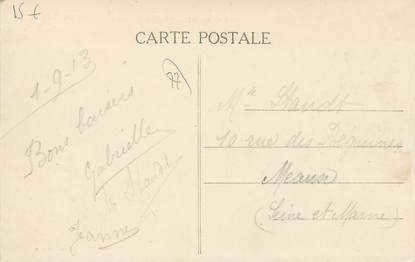 15 €
CARTE POSTALE
77
1-9-13
Bons baisers
Gabrielle
Jeanne
10 rue des Béguines
Meaux
(Seine et Marne)